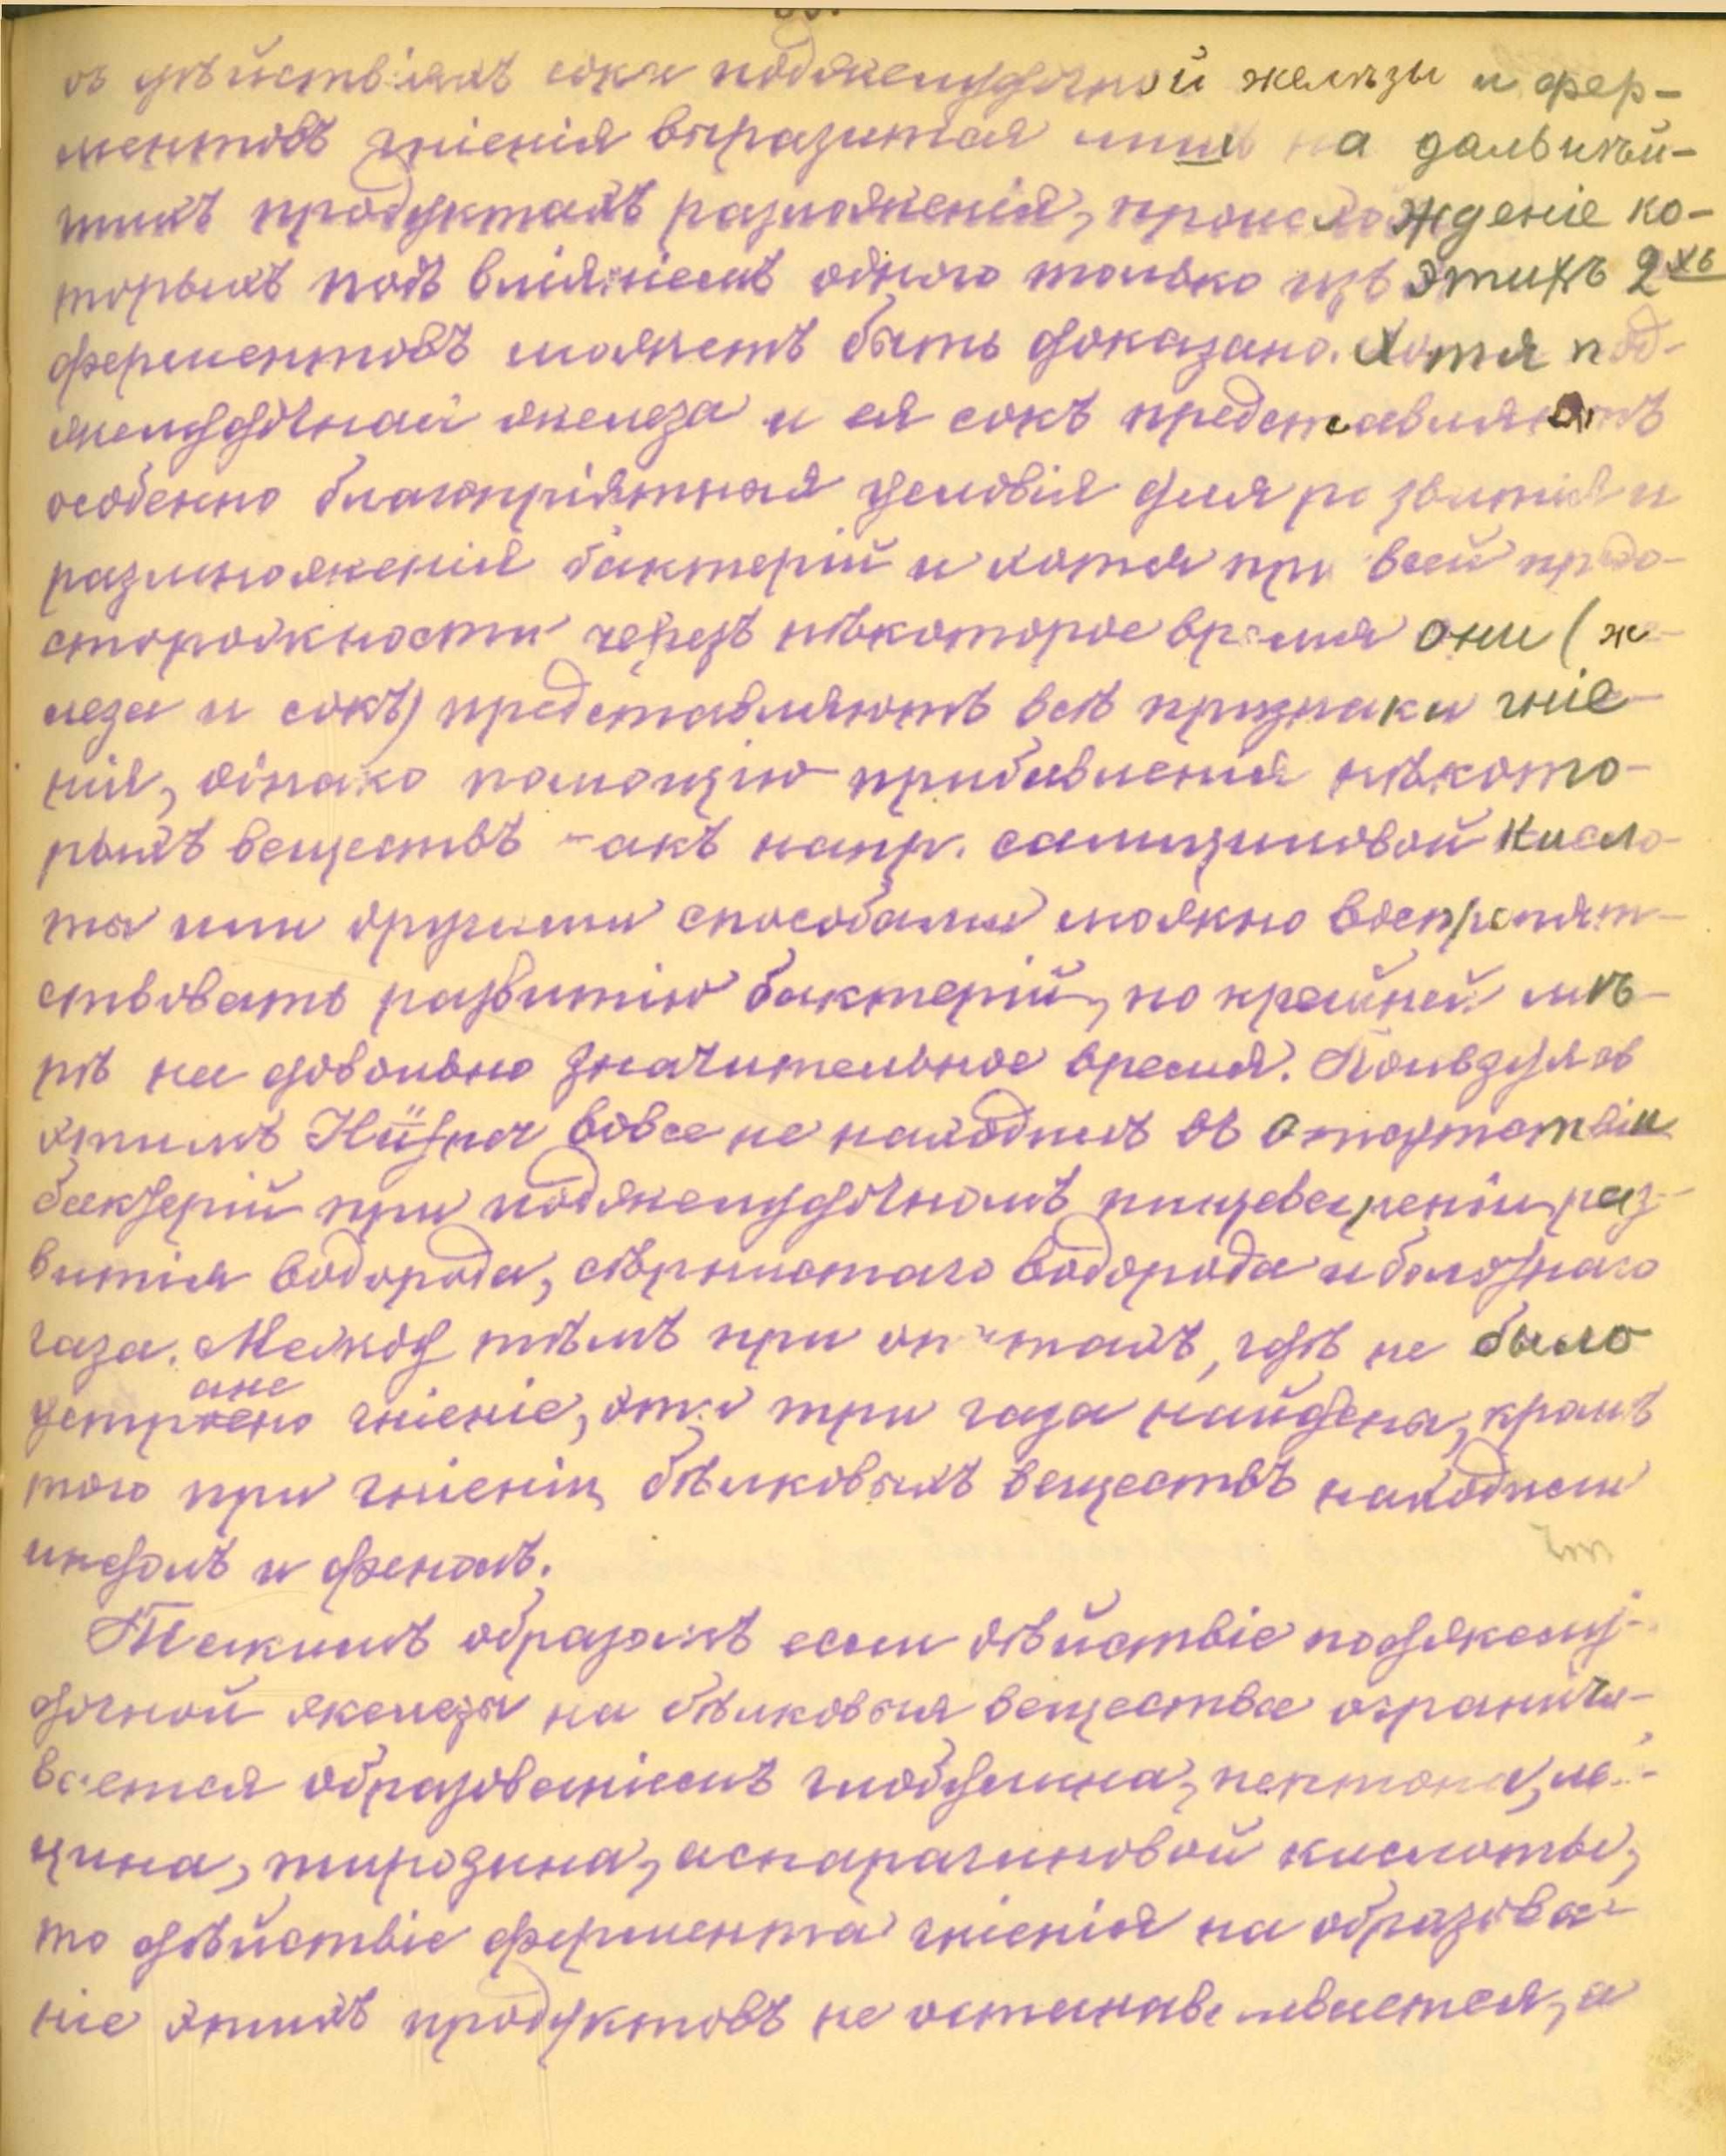 въ дѣйствіяхъ сока поджелудочной желѣзы и фер-
ментовъ гніенія выразится лишь на дальнѣй-
шихъ продуктахъ разложенія, происхожденіе ко-
торыхъ подъ вліяніемъ одного только изъ этихъ 2хъ
ферментовъ можетъ быть доказано. Хотя под-
желудочная железа и ея сокъ представляютъ
особенно благопріятныя условія для развитія и
размноженія бактерій и хотя при всей предо-
сторожности черезъ нѣкоторое время они (же-
леза и сокъ) представляютъ всѣ признаки гніе-
нія, однако помощію прибавленія нѣкото-
рыхъ веществъ -акъ напр. салициловой кисло-
ты или другими способами можно воспрепят-
ствовать развитію бактерій, по крайней мѣ-
рѣ на довольно значительное время. Пользуясь
этимъ Hüfner вовсе не находитъ въ отсутствіи
бактерій при поджелудочномъ пищевареніи раз-
витія водорода, сѣрнистаго водорода и болотнаго
газа. Между тѣмъ при опытахъ, гдѣ не было
ане
устроено гніеніе, эти три газа найдены, кромѣ
того при гніеніи бѣлковыхъ веществъ находили
индолъ и фенолъ.
Такимъ образомъ если дѣйствіе поджелу-
дочной железы на бѣлковыя вещества ограничи-
вается образованіемъ глобулина, пептона, лей-
цина, тирозина, аспарагиновой кислоты,
то дѣйствіе фермента гніенія на образова-
ніе этихъ продуктовъ не останавливается, а